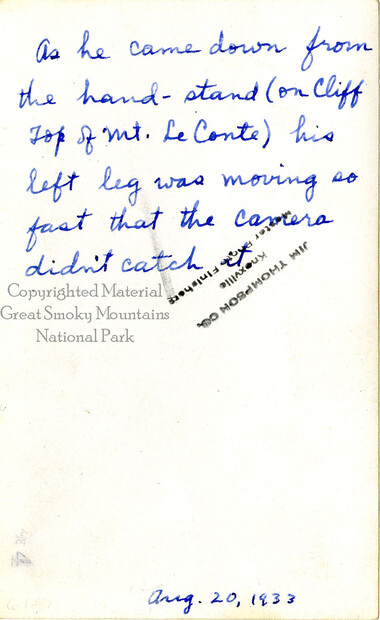 As he came down from
the hand-stand (on Cliff
Top of Mt. Le Conte) his
left leg was moving so
fast that the camera
didn't catch it.
JIM THOMPSON CO.
Knoxville
Master Photo Finishers
Copyrighted Material
Great Smoky Mountains
National Park
Aug. 20, 1933